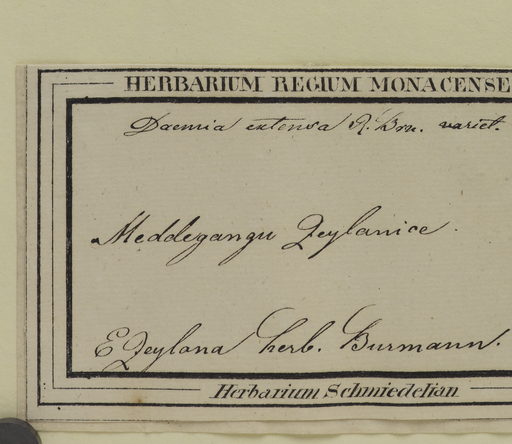 HERBARIUM REGIUM MONACENSE
Daemia extensa R. Brn. variet.
Meddegangu Zeylanice.
E Zeylona herb. Burmann.
Herbarium Schmiedelian